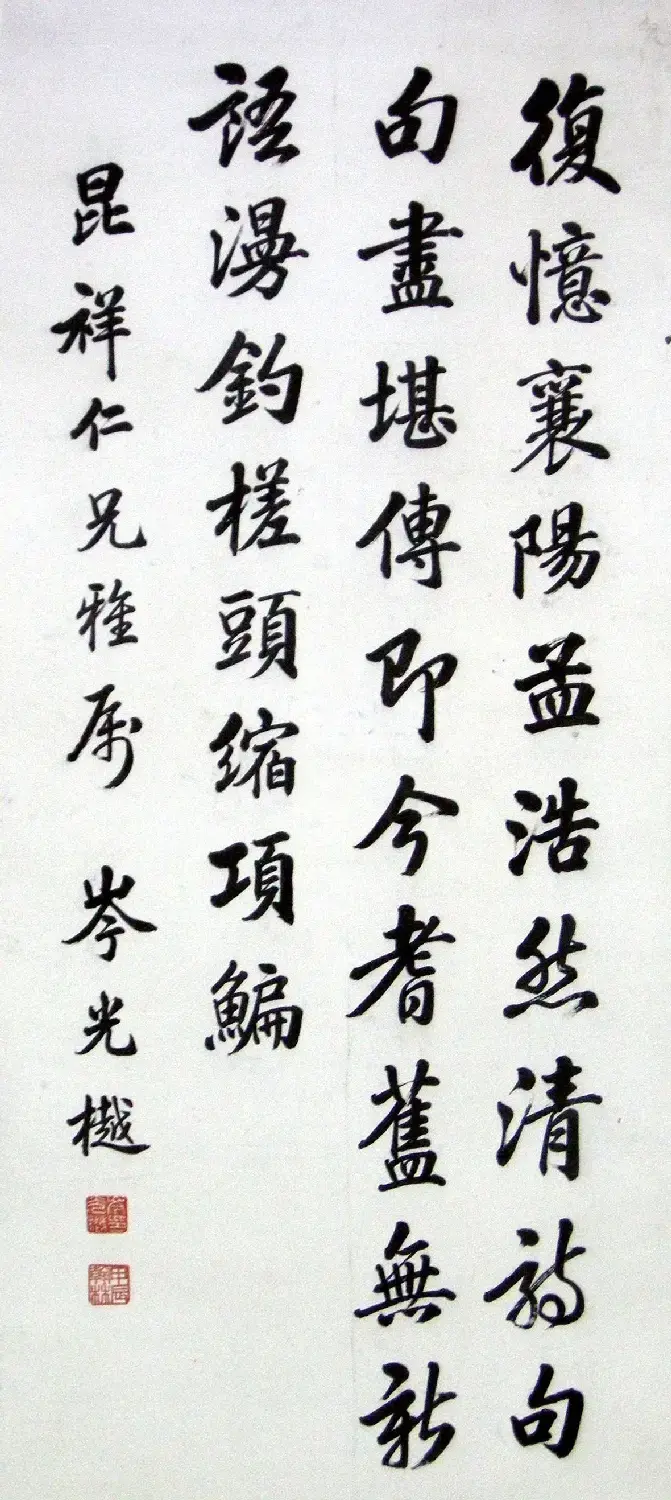 復憶襄陽孟浩然清詩句
句盡堪傳即今耆舊無新
語漫釣槎頭縮項鯿
昆祥仁兄雅属 岑光樾
甲辰翰林